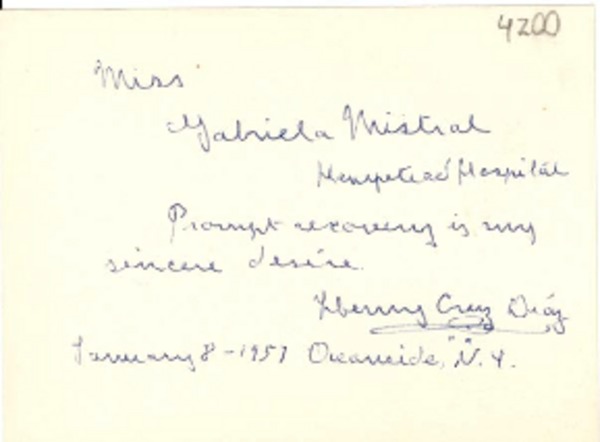 4200
Miss
Gabriela Mistral
Hempstead Hospital
Prompt recovery is my
sincere desire.
Cruz Diáz
January 8-1957 Oceanside, "N.Y.